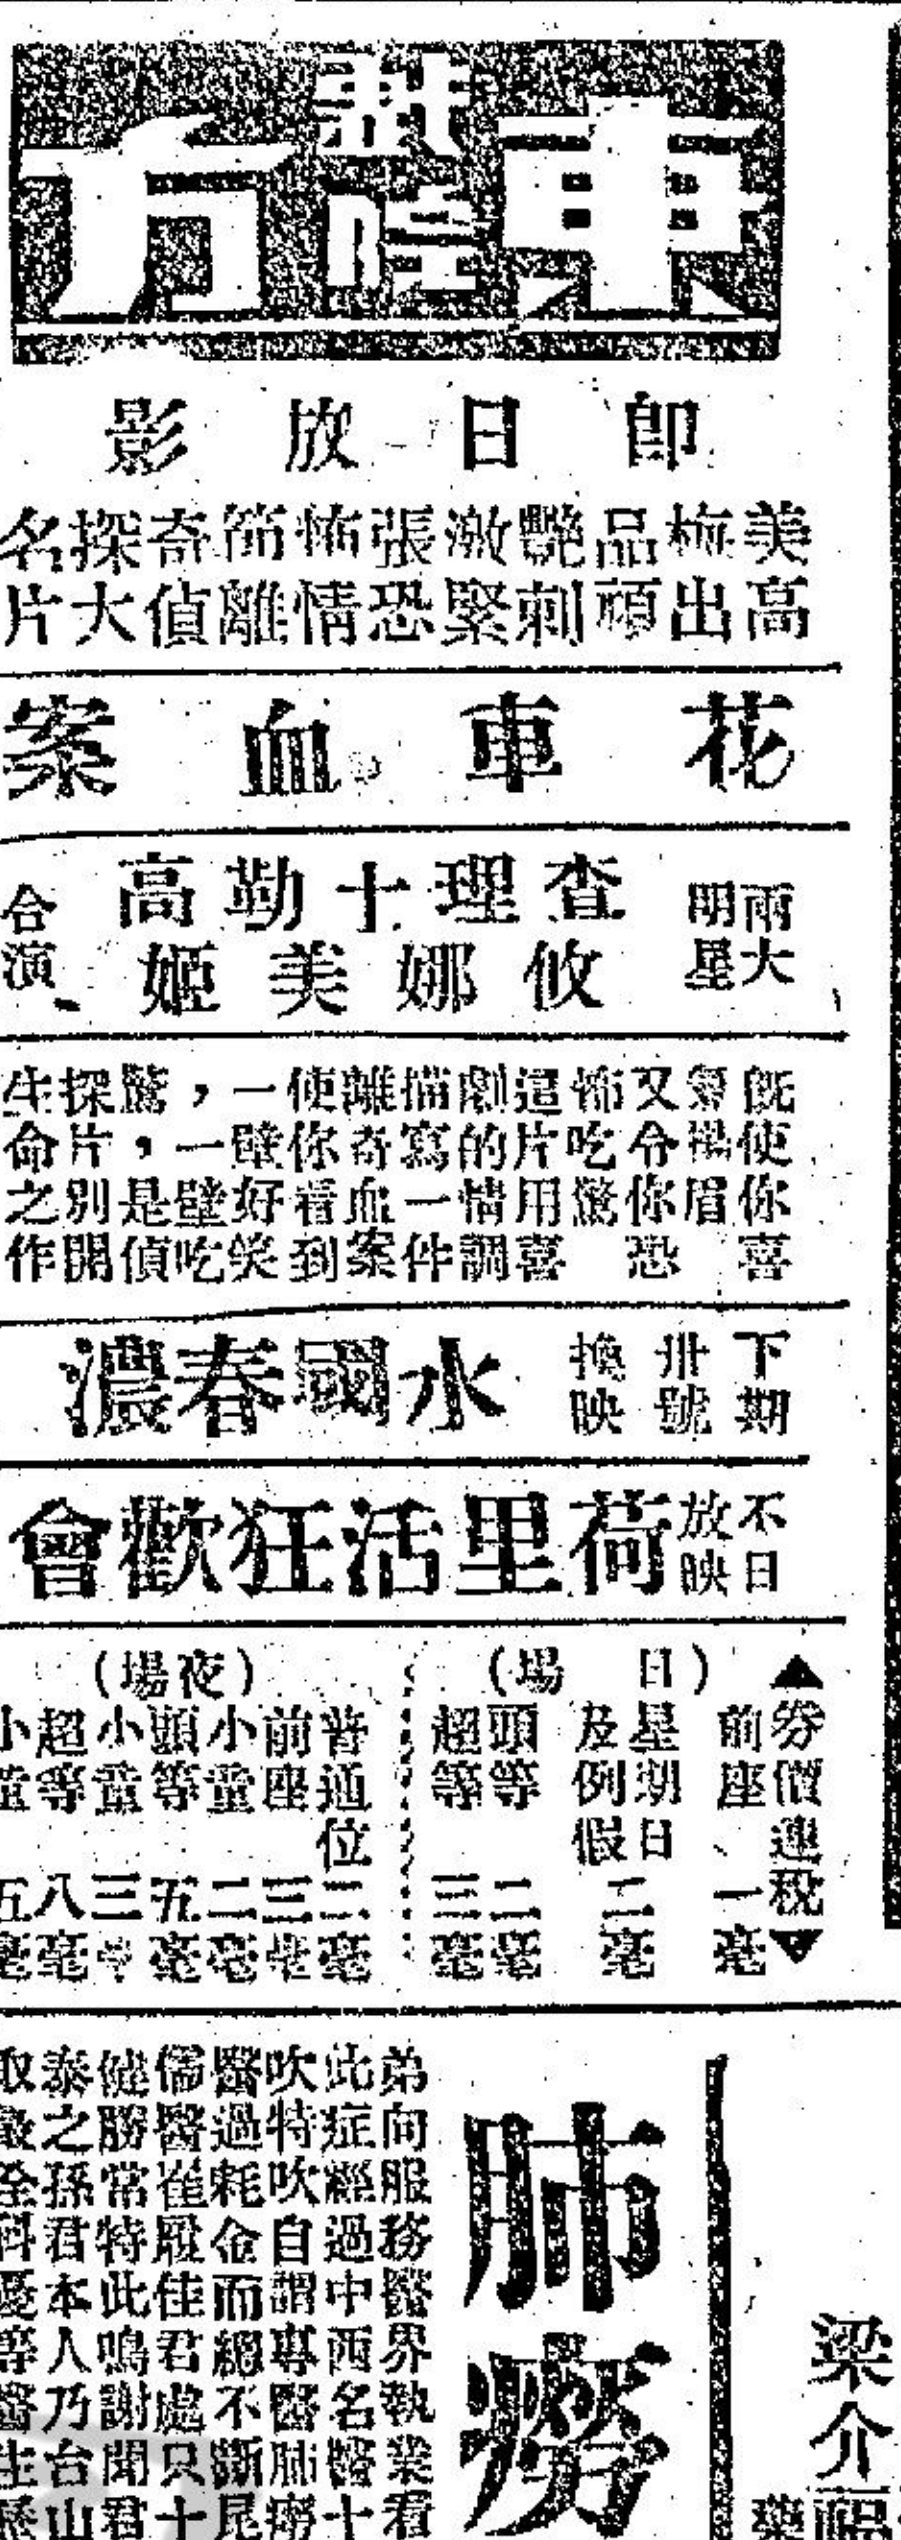 東方戲院
即日放影
美高
梅出
品頑
艷刺
激緊
張恐
怖情
節離
奇偵
探大
名片
花車血案
兩大
明星
查理士勒高
攸娜美姬
合演
既使你喜
揚眉
又令你恐
怖吃驚
這片用喜
劇的情調
描寫一件
離奇血案
使你看到
一壁好笑
，一壁吃
驚，是偵
探片別開
生命之作
下期
卅號
換映
水國春濃
不日
放映
荷里活狂歡會
▲券價連稅▼
(日場)
前座、一毫
星期日
及例假 二毫
頭等 二毫
超等 三毫
(夜場)
普通位二毫
前座 三毫
小童 二毫
頭等 五毫
小童 三毫
超等 八毫
小童 五毫
肺癆
弟向服務醫界執業看
此症經過中西名醫十
吹特吹自謂專醫肺癆
醫過耗金而總不漸尾
儒醫崔佳君處只十
健勝常特此鳴謝聞君
泰之孫君本人乃台山
取全科等醫生
梁介福
藥